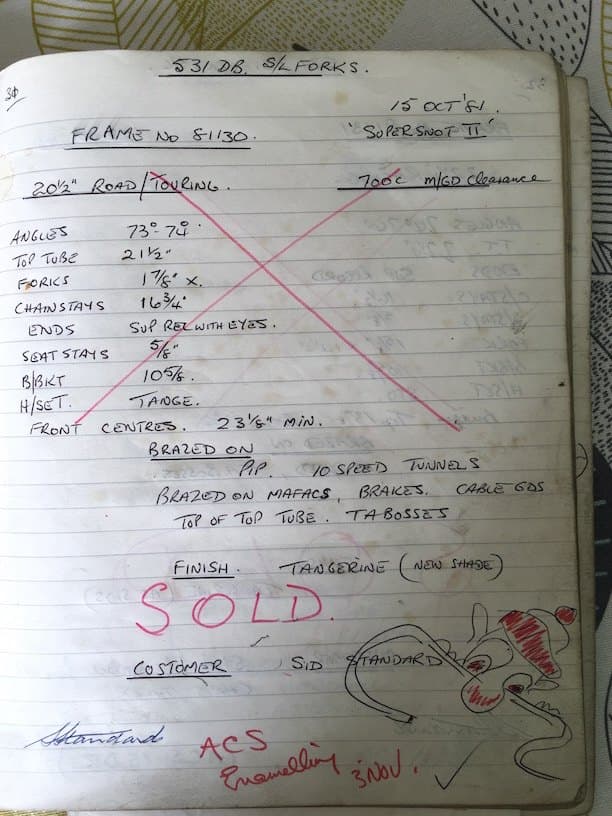 531 DB. S/L FORKS.
30
15 OCT '81.
FRAME No 81130. 'SUPERSNOT II'
20½" ROAD/TOURING. 700c M/GD Clearance
ANGLES 73° - 74°.
TOP TUBE 21½"
FORKS 1⅞" X.
CHAINSTAYS 16¾"
ENDS SUP REL WITH EYES.
SEAT STAYS ⅝"
B/BKT 10⅝.
H/SET. TANGE.
FRONT CENTRES. 23⅛" MIN.
BRAZED ON
PIP. 10 SPEED TUNNELS
BRAZED ON MAFACS, BRAKES. CABLE GDS
TOP OF TOP TUBE. TA BOSSES
FINISH. TANGERINE (NEW SHADE)
SOLD.
CUSTOMER SID STANDARD
SStandard
ACS
Enamelling 3 NOV.